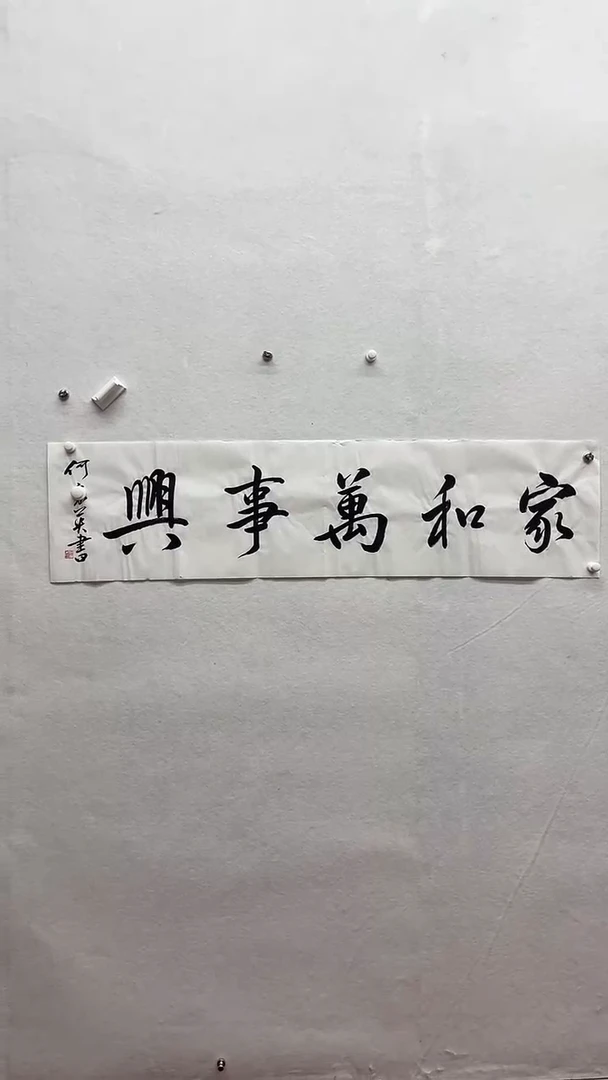 家和萬事興
何
書